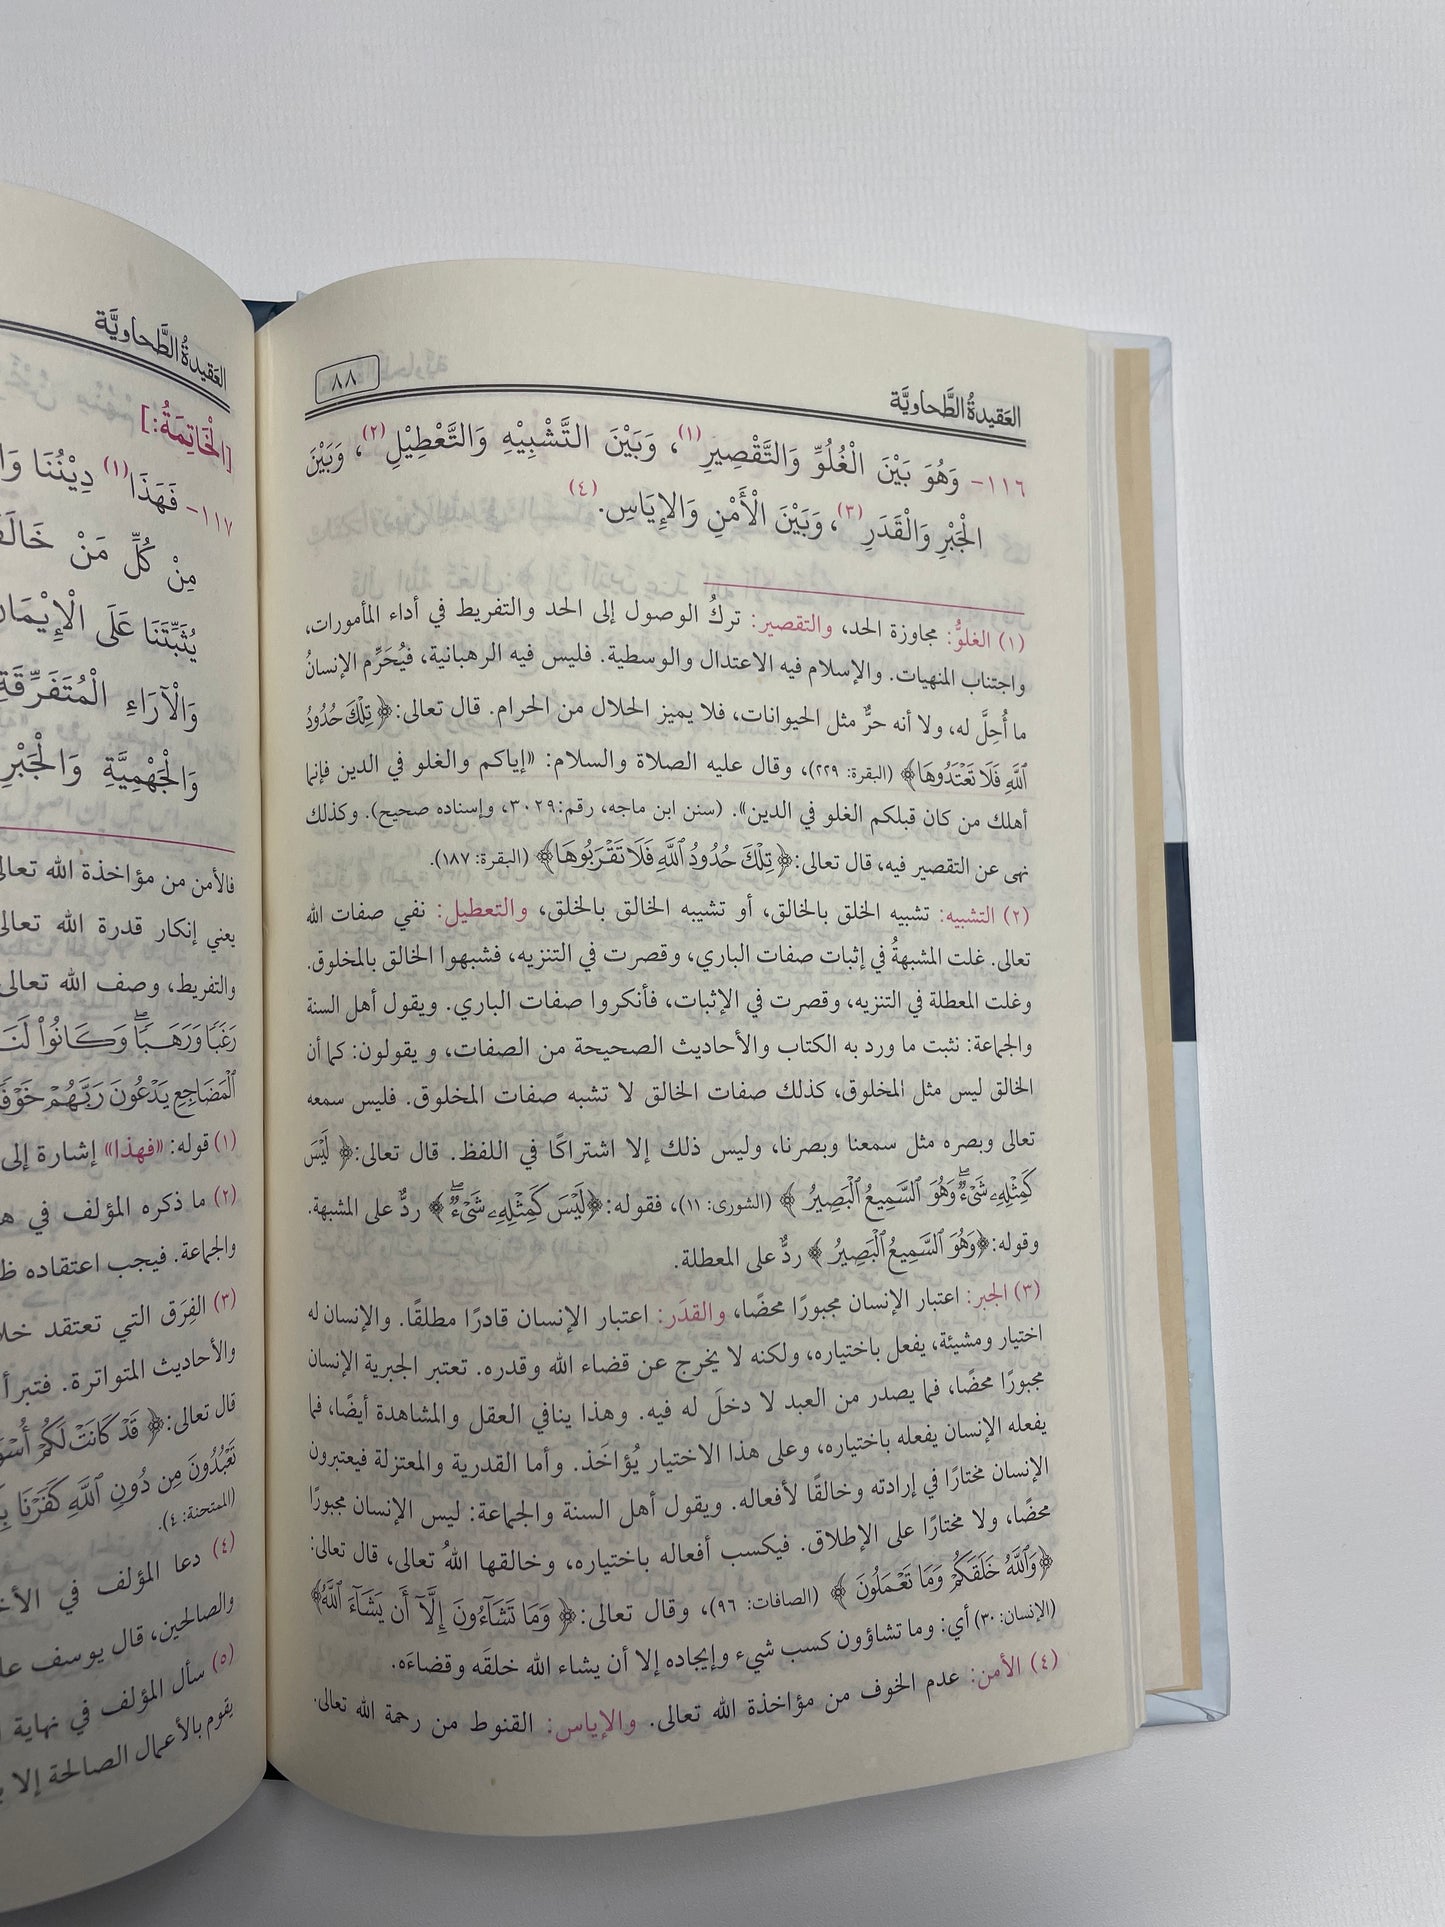 العقيدةُ الطَّحاويَّة
٨٨
١١٦- وَهُوَ بَيْنَ الْغُلُوِّ وَالتَّقْصِيْرِ(١)، وَبَيْنَ التَّشْبِيْهِ وَالتَّعْطِيْلِ(٢)، وَبَيْنَ
الْجَبْرِ وَالْقَدَرِ(٣)، وَبَيْنَ الْأَمْنِ وَالإِيَاسِ.(٤)
(١) الغلوُّ: مجاوزة الحد، والتقصير: تركُ الوصول إلى الحد والتفريط في أداء المأمورات،
واجتناب المنهيات. والإسلام فيه الاعتدال والوسطية. فليس فيه الرهبانية، فيُحَرِّم الإنسانُ
ما أُحِلَّ له، ولا أنه حرٌّ مثل الحيوانات، فلا يميز الحلال من الحرام. قال تعالى:﴿ تِلْكَ حُدُودُ
ٱللَّهِ فَلَا تَعْتَدُوهَا﴾ (البقرة: ٢٢٩)، وقال عليه الصلاة والسلام: «إياكم والغلو في الدين فإنما
أهلك من كان قبلكم الغلو في الدين». (سنن ابن ماجه، رقم:٣٠٢٩، وإسناده صحيح). وكذلك
نهى عن التقصير فيه، قال تعالى:﴿ تِلْكَ حُدُودُ ٱللَّهِ فَلَا تَقْرَبُوهَا﴾ (البقرة: ١٨٧).
(٢) التشبيه: تشبيه الخلق بالخالق، أو تشبيه الخالق بالخلق، والتعطيل: نفي صفات الله
تعالى. غلت المشبهةُ في إثبات صفات الباري، وقصرت في التنزيه، فشبهوا الخالق بالمخلوق.
وغلت المعطلة في التنزيه، وقصرت في الإثبات، فأنكروا صفات الباري. ويقول أهل السنة
والجماعة: نثبت ما ورد به الكتاب والأحاديث الصحيحة من الصفات، و يقولون: كما أن
الخالق ليس مثل المخلوق، كذلك صفات الخالق لا تشبه صفات المخلوق. فليس سمعه
تعالى وبصره مثل سمعنا وبصرنا، وليس ذلك إلا اشتراكًا في اللفظ. قال تعالى:﴿ لَيْسَ
كَمِثْلِهِۦ شَىْءٌۖ وَهُوَ ٱلسَّمِيعُ ٱلْبَصِيرُ ﴾ (الشورى: ١١)، فقوله:﴿لَيْسَ كَمِثْلِهِۦ شَىْءٌۖ ﴾ ردٌّ على المشبهة.
وقوله:﴿وَهُوَ ٱلسَّمِيعُ ٱلْبَصِيرُ ﴾ ردٌّ على المعطلة.
(٣) الجبر: اعتبار الإنسان مجبورًا محضًا، والقدَر: اعتبار الإنسان قادرًا مطلقًا. والإنسان له
اختيار ومشيئة، يفعل باختياره، ولكنه لا يخرج عن قضاء الله وقدره. تعتبر الجبرية الإنسان
مجبورًا محضًا، فما يصدر من العبد لا دخلَ له فيه. وهذا ينافي العقل والمشاهدة أيضًا، فما
يفعله الإنسان يفعله باختياره، وعلى هذا الاختيار يُؤاخَذ. وأما القدرية والمعتزلة فيعتبرون
الإنسان مختارًا في إرادته وخالقًا لأفعاله. ويقول أهل السنة والجماعة: ليس الإنسان مجبورًا
محضًا، ولا مختارًا على الإطلاق. فيكسب أفعاله باختياره، وخالقها اللهُ تعالى، قال تعالى:
﴿وَٱللَّهُ خَلَقَكُمْ وَمَا تَعْمَلُونَ ﴾ (الصافات: ٩٦)، وقال تعالى:﴿ وَمَا تَشَآءُونَ إِلَّآ أَن يَشَآءَ ٱللَّهُ﴾
(الإنسان: ٣٠) أي: وما تشاؤون كسب شيء وإيجاده إلا أن يشاء الله خلقَه وقضاءَه.
(٤) الأمن: عدم الخوف من مؤاخذة الله تعالى. والإياس: القنوط من رحمة الله تعالى.
العقيدةُ الطَّحاويَّة
[الْخَاتِمَةُ:]
١١٧- فَهَذَا(١) دِيْنُنَا
مِنْ كُلِّ مَنْ
يُثَبِّتَنَا عَلَى الْإِيْمَانِ
وَالْآرَاءِ الْمُتَفَرِّقَةِ
وَالْجَهْمِيَّةِ وَالْجَبْرِ
فالأمن من مؤاخذة الله تعالى
يعني إنكار قدرة الله تعالى
والتفريط، وصف الله تعالى
رَغَبًا وَرَهَبًاۖ وَكَانُوا۟
ٱلْمَضَاجِعِ يَدْعُونَ رَبَّهُمْ خَوْفًا
(١) قوله: «فهذا» إشارة إلى
(٢) ما ذكره المؤلف في
والجماعة. فيجب اعتقاده
(٣) الفِرَق التي تعتقد
والأحاديث المتواترة. فتبرأ
قال تعالى:﴿ قَدْ كَانَتْ لَكُمْ
تَعْبُدُونَ مِن دُونِ ٱللَّهِ كَفَرْنَا
(الممتحنة: ٤).
(٤) دعا المؤلف في
والصالحين، قال يوسف
(٥) سأل المؤلف في نهاية
يقوم بالأعمال الصالحة إلا